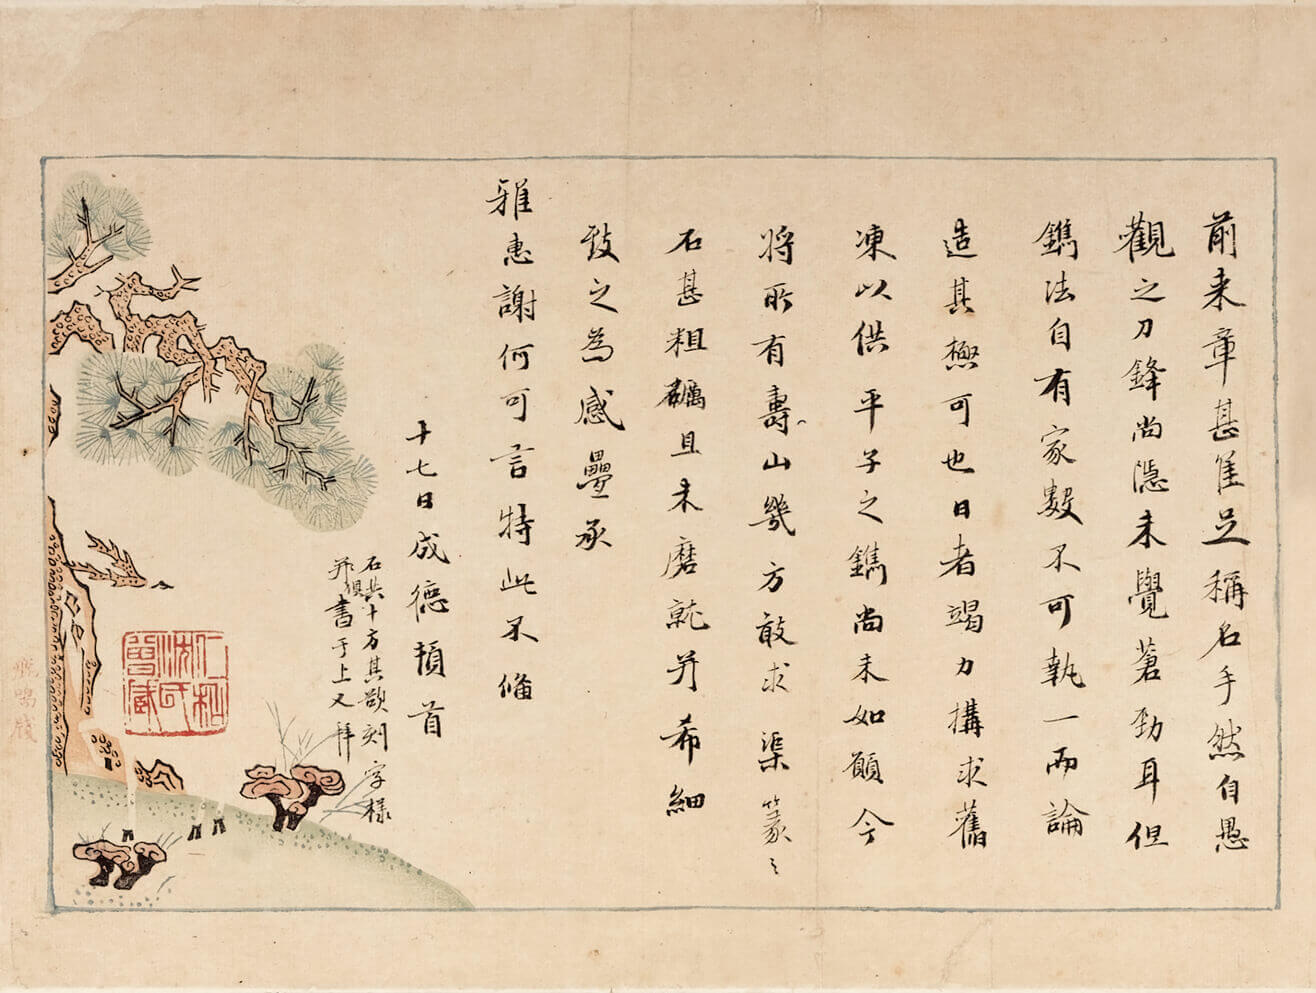 前来章甚佳足稱名手然自愚
觀之刀鋒尚隱未覺蒼勁耳但
鐫法自有家數不可執一而論
造其極可也日者竭力構求舊
凍以供平子之鐫尚未如願今
將所有壽山幾方敢求渠篆之
石甚粗礪且未磨就并希細
致之為感疊承
雅惠謝何可言特此不備
十七日成德頓首
石共十方其欲刻字樣
并俱書于上又拜
仁和
沈氏
曾藏
飛鴻牋